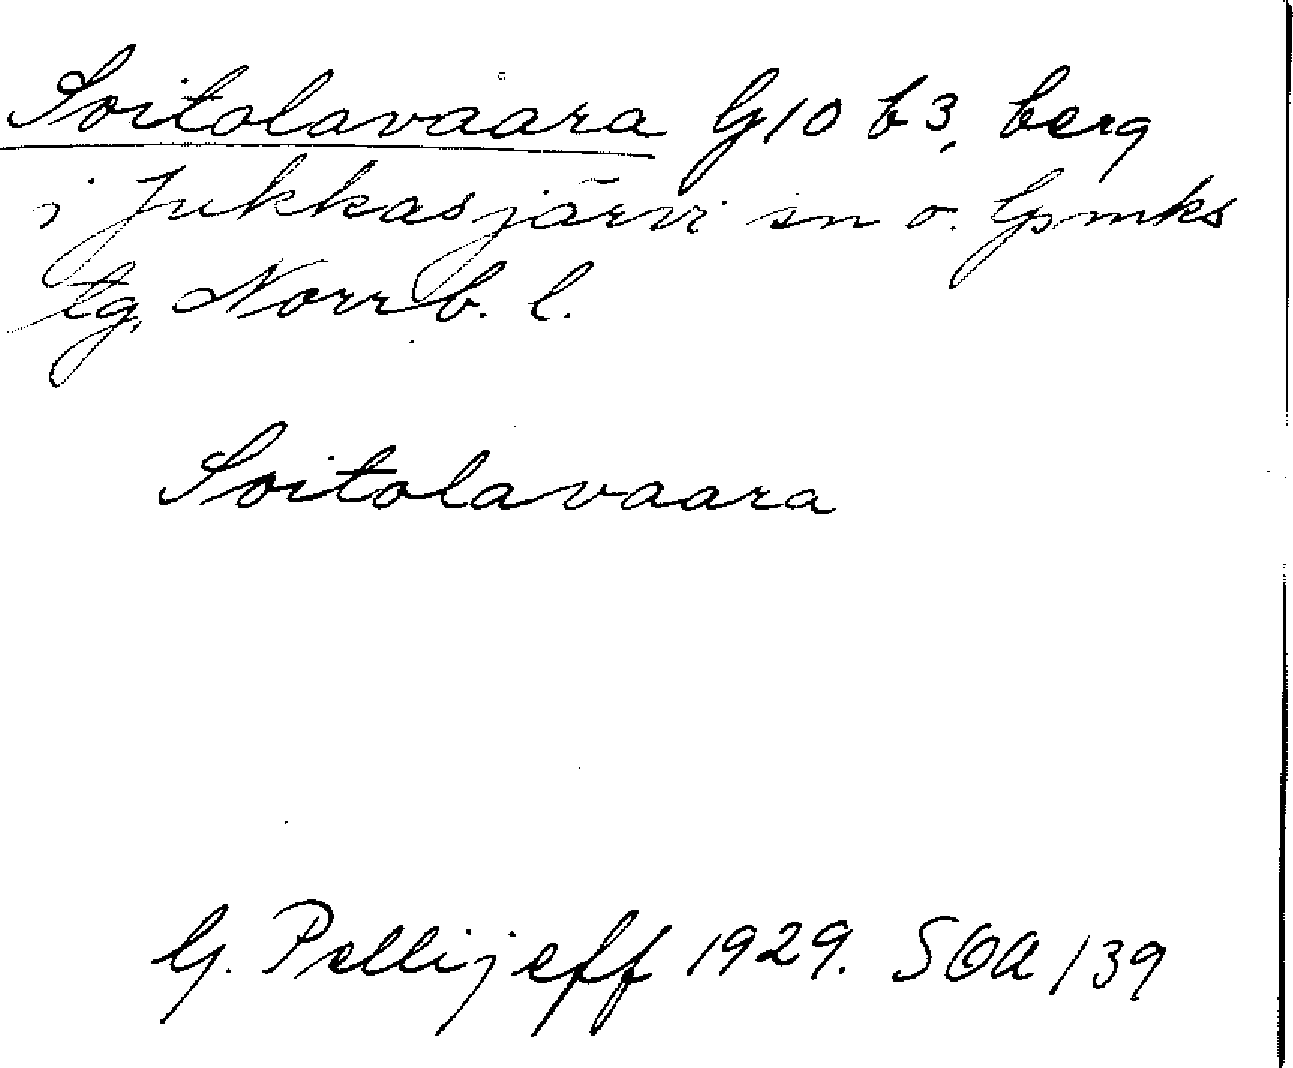 Soitolavaara G10 b3, berg
i Jukkasjärvi sn o. Gmks
tg, Norrb. l.
Soitolavaara
G. Pellijeff 1929. SOA 139